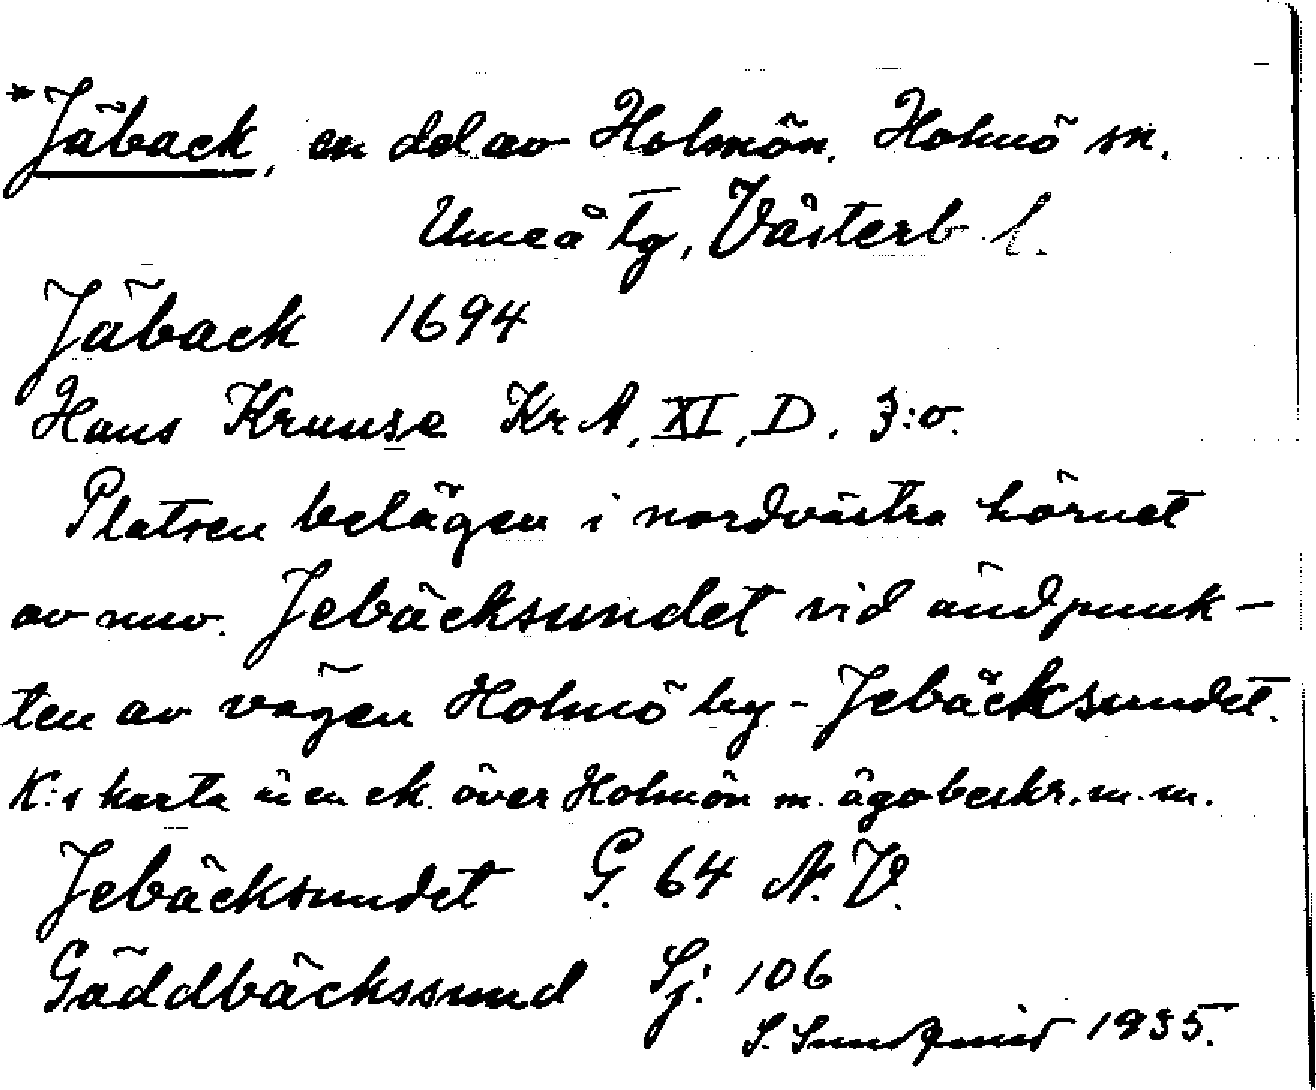 *Jäback, en del av Holmön. Holmö sn.
Umeå tg, Västerb. l.
Jäback 1694
Hans Kruuse KrA, XI, D. 3:o.
Platsen belägen i nordvästra hörnet
av nuv. Jebäcksundet vid ändpunk-
ten av vägen Holmö by - Jebäcksundet.
K:s karta är en ek. över Holmön m. ägobeskr. m. m.
Jebäcksundet G. 64 N. V.
Gäddbäckssund Sj. 106
S. Sundqvist 1935.